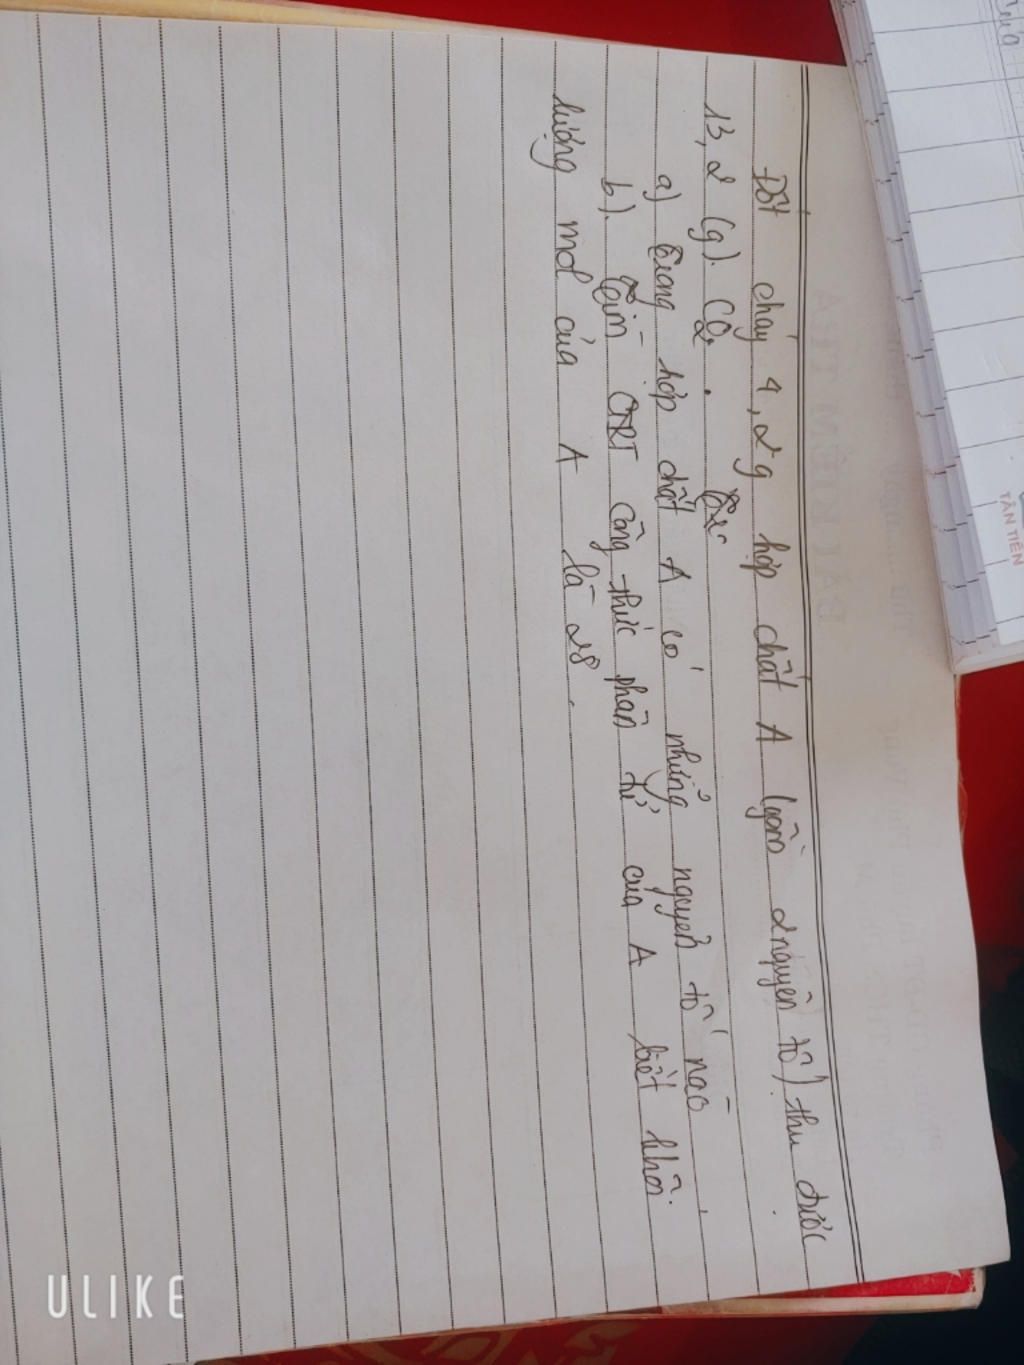 Đốt cháy 4,2g hợp chất A (gồm 2 nguyên tố) thu được
13,2 (g). CO2.
a) Trong hợp chất A có những nguyên tố nào
b). Tìm CTPT công thức phân tử của A biết khối
lượng mol của A là 28.
TÂN TIẾN
ULIKE